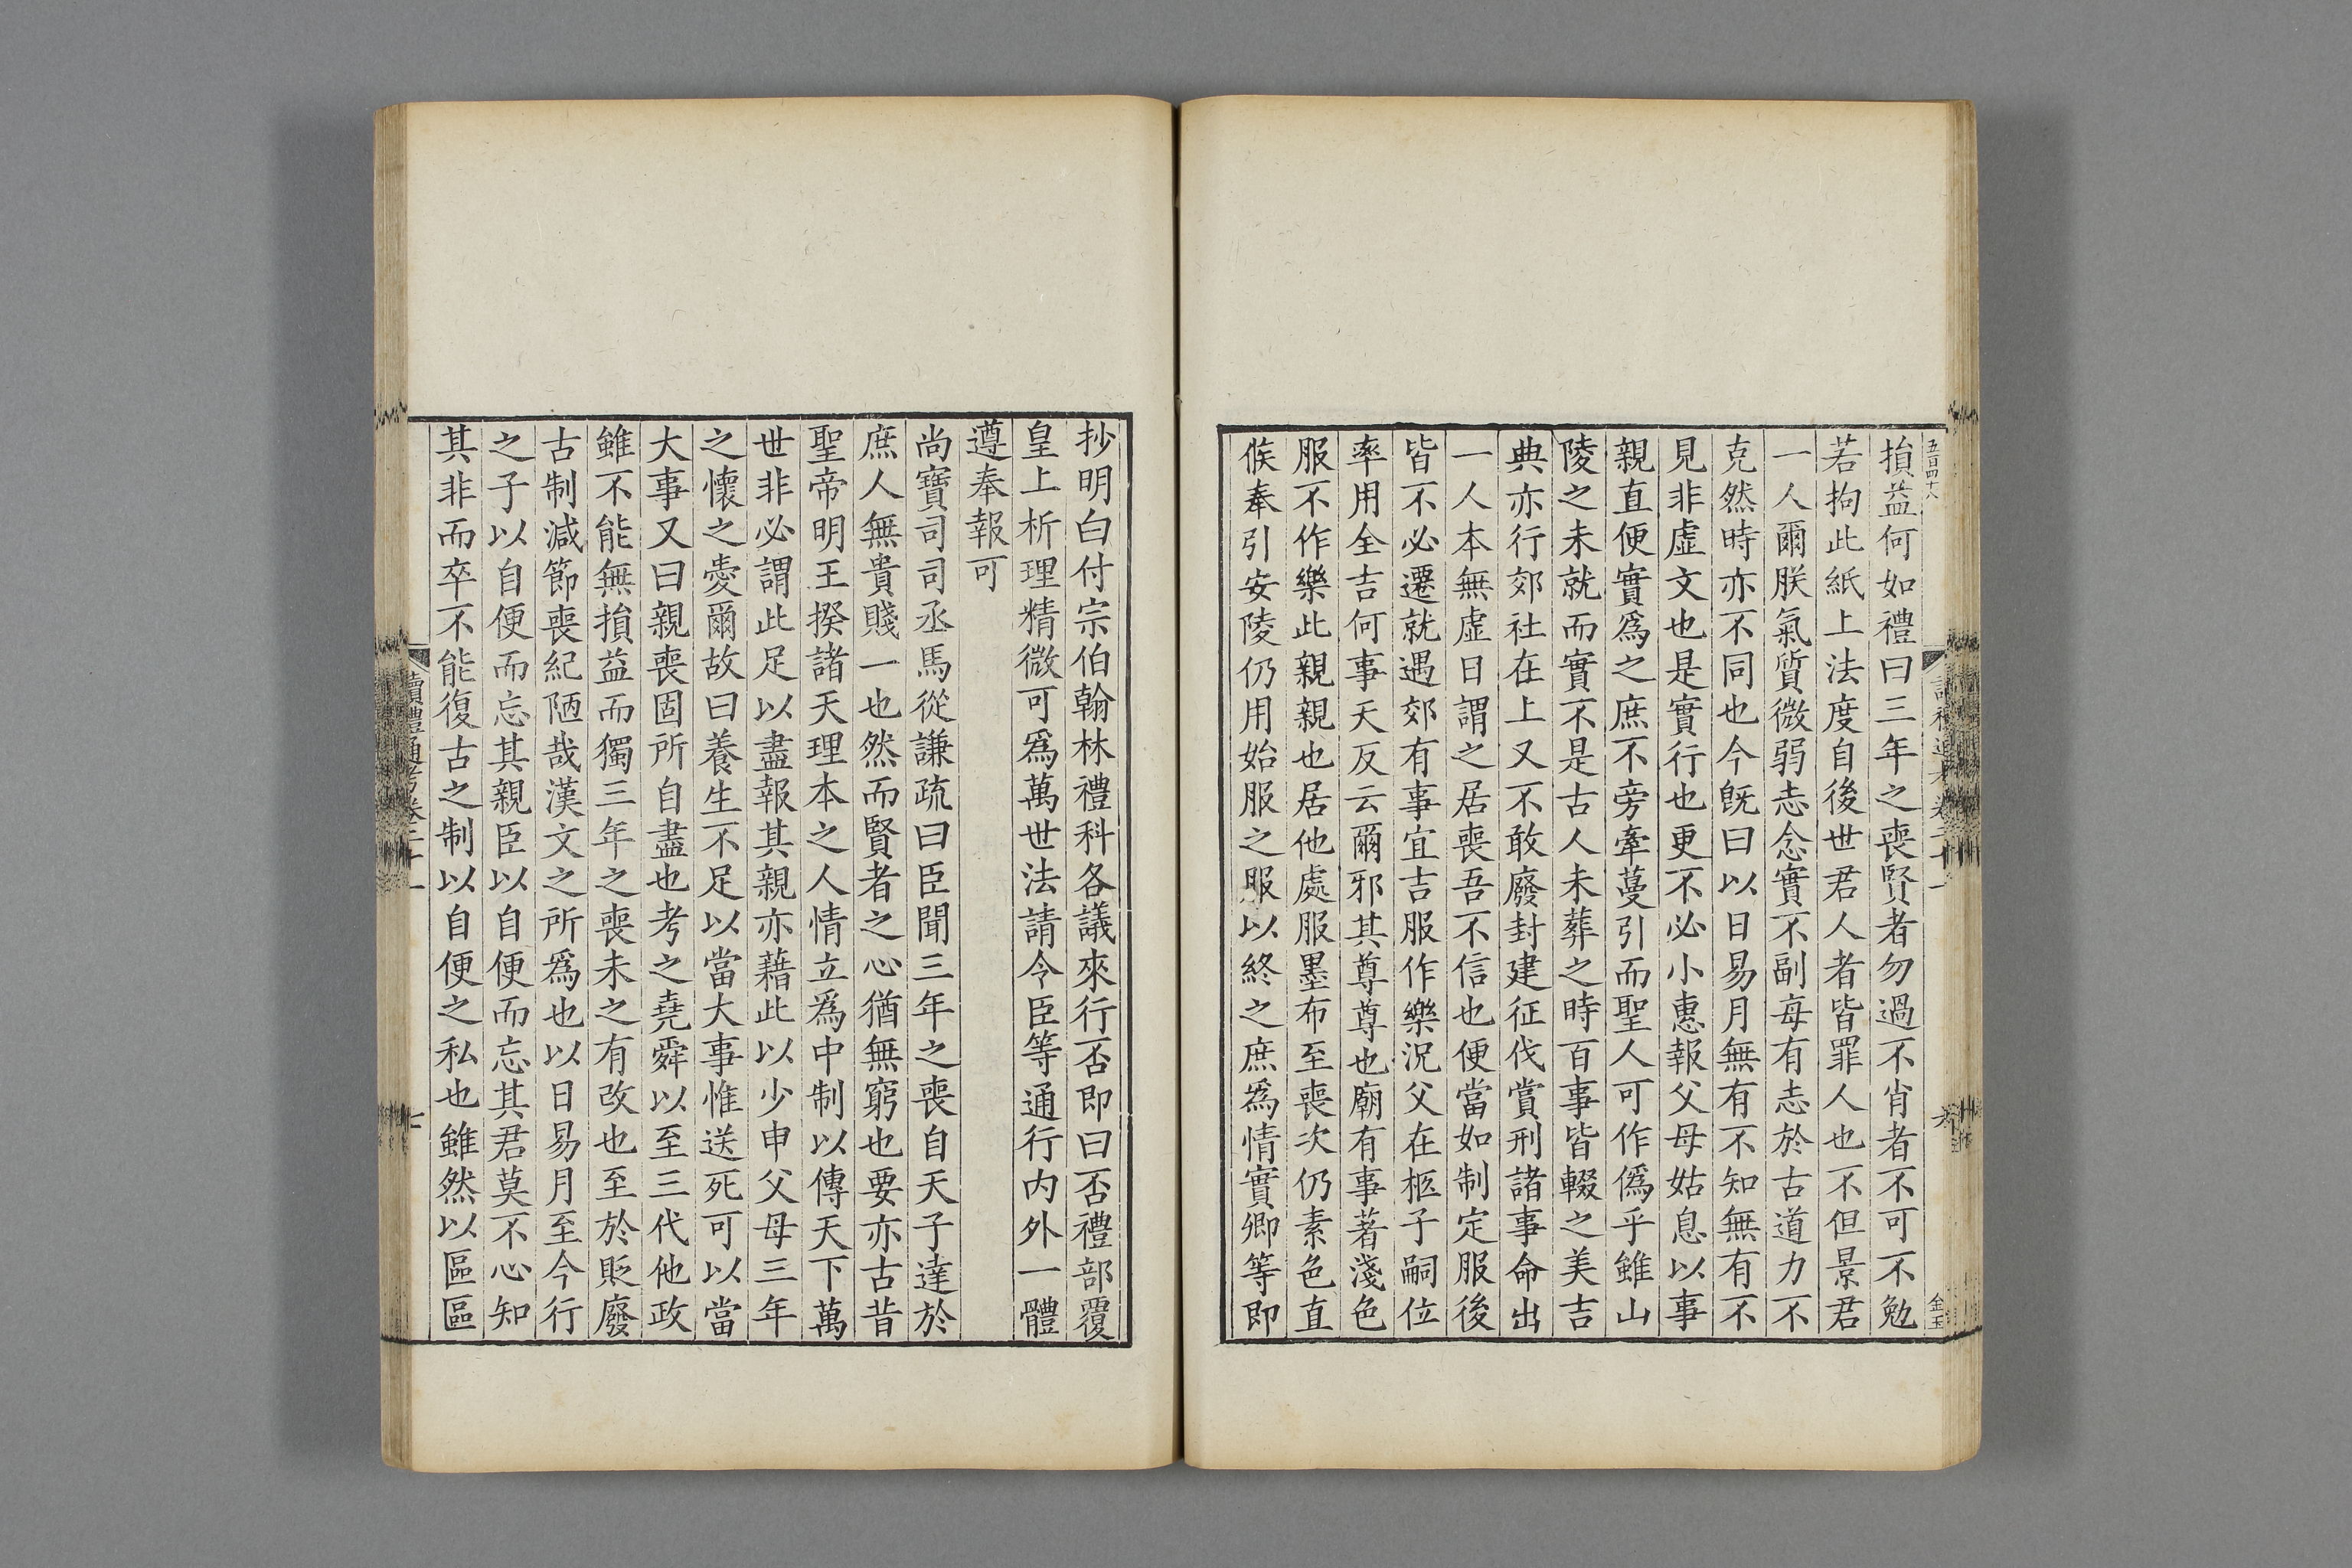 五百四十八
損益何如禮曰三年之喪賢者勿過不肖者不可不勉
若拘此紙上法度自後世君人者皆罪人也不但景君
一人爾朕氣質微弱志念實不副每有志於古道力不
克然時亦不同也今旣曰以日易月無有不知無有不
見非虛文也是實行也更不必小惠報父母姑息以事
親直便實爲之庶不旁牽蔓引而聖人可作僞乎雖山
陵之未就而實不是古人未葬之時百事皆輟之美吉
典亦行郊社在上又不敢廢封建征伐賞刑諸事命出
一人本無虛日謂之居喪吾不信也便當如制定服後
皆不必遷就遇郊有事宜吉服作樂況父在柩子嗣位
率用全吉何事天反云爾邪其尊尊也廟有事著淺色
服不作樂此親親也居他處服墨布至喪次仍素色直
候奉引安陵仍用始服之服以終之庶爲情實卿等即
抄明白付宗伯翰林禮科各議來行否即曰否禮部覆
皇上析理精微可爲萬世法請令臣等通行内外一體
遵奉報可
尚寶司司丞馬從謙疏曰臣聞三年之喪自天子達於
庶人無貴賤一也然而賢者之心猶無窮也要亦古昔
聖帝明王揆諸天理本之人情立爲中制以傳天下萬
世非必謂此足以盡報其親亦藉此以少申父母三年
之懷之愛爾故曰養生不足以當大事惟送死可以當
大事又曰親喪固所自盡也考之堯舜以至三代他政
雖不能無損益而獨三年之喪未之有改也至於貶廢
古制減節喪紀陋哉漢文之所爲也以日易月至今行
之子以自便而忘其親臣以自便而忘其君莫不心知
其非而卒不能復古之制以自便之私也雖然以區區
讀禮通考卷二十一